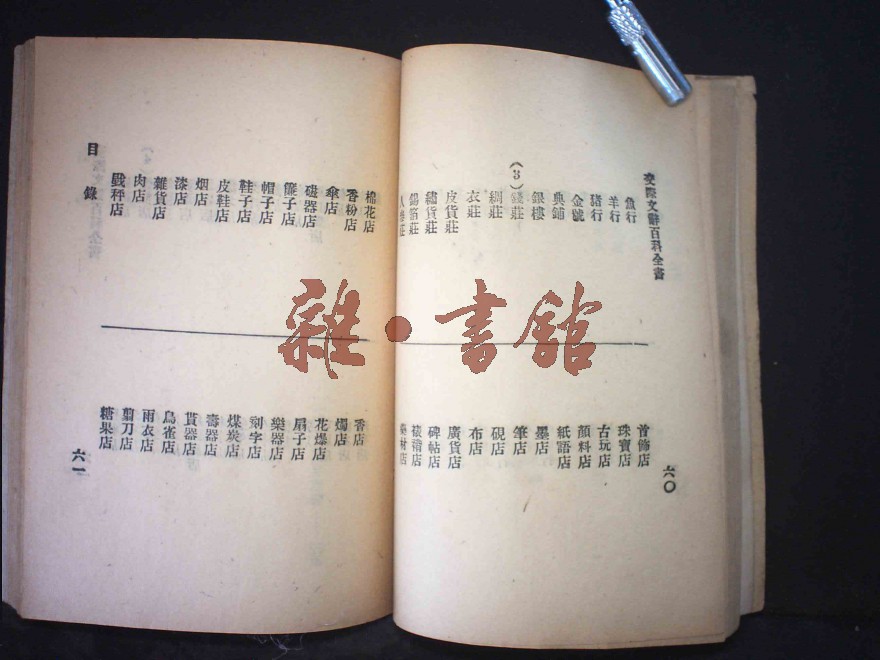 交際文辭百科全書
魚行
羊行
豬行
金號
典鋪
銀樓
(3)錢莊
綢莊
衣莊
皮貨莊
繡貨莊
錫箔莊
人參莊
首飾店
珠寶店
古玩店
顏料店
紙語店
墨店
筆店
硯店
布店
廣貨店
碑帖店
裱褙店
藥材店
六〇
棉花店
香粉店
傘店
磁器店
簾子店
帽子店
鞋子店
皮鞋店
烟店
漆店
雜貨店
肉店
戥秤店
香店
燭店
花爆店
扇子店
樂器店
刻字店
煤炭店
壽器店
貰器店
鳥雀店
雨衣店
翦刀店
糖果店
目錄
六一
雜·書館